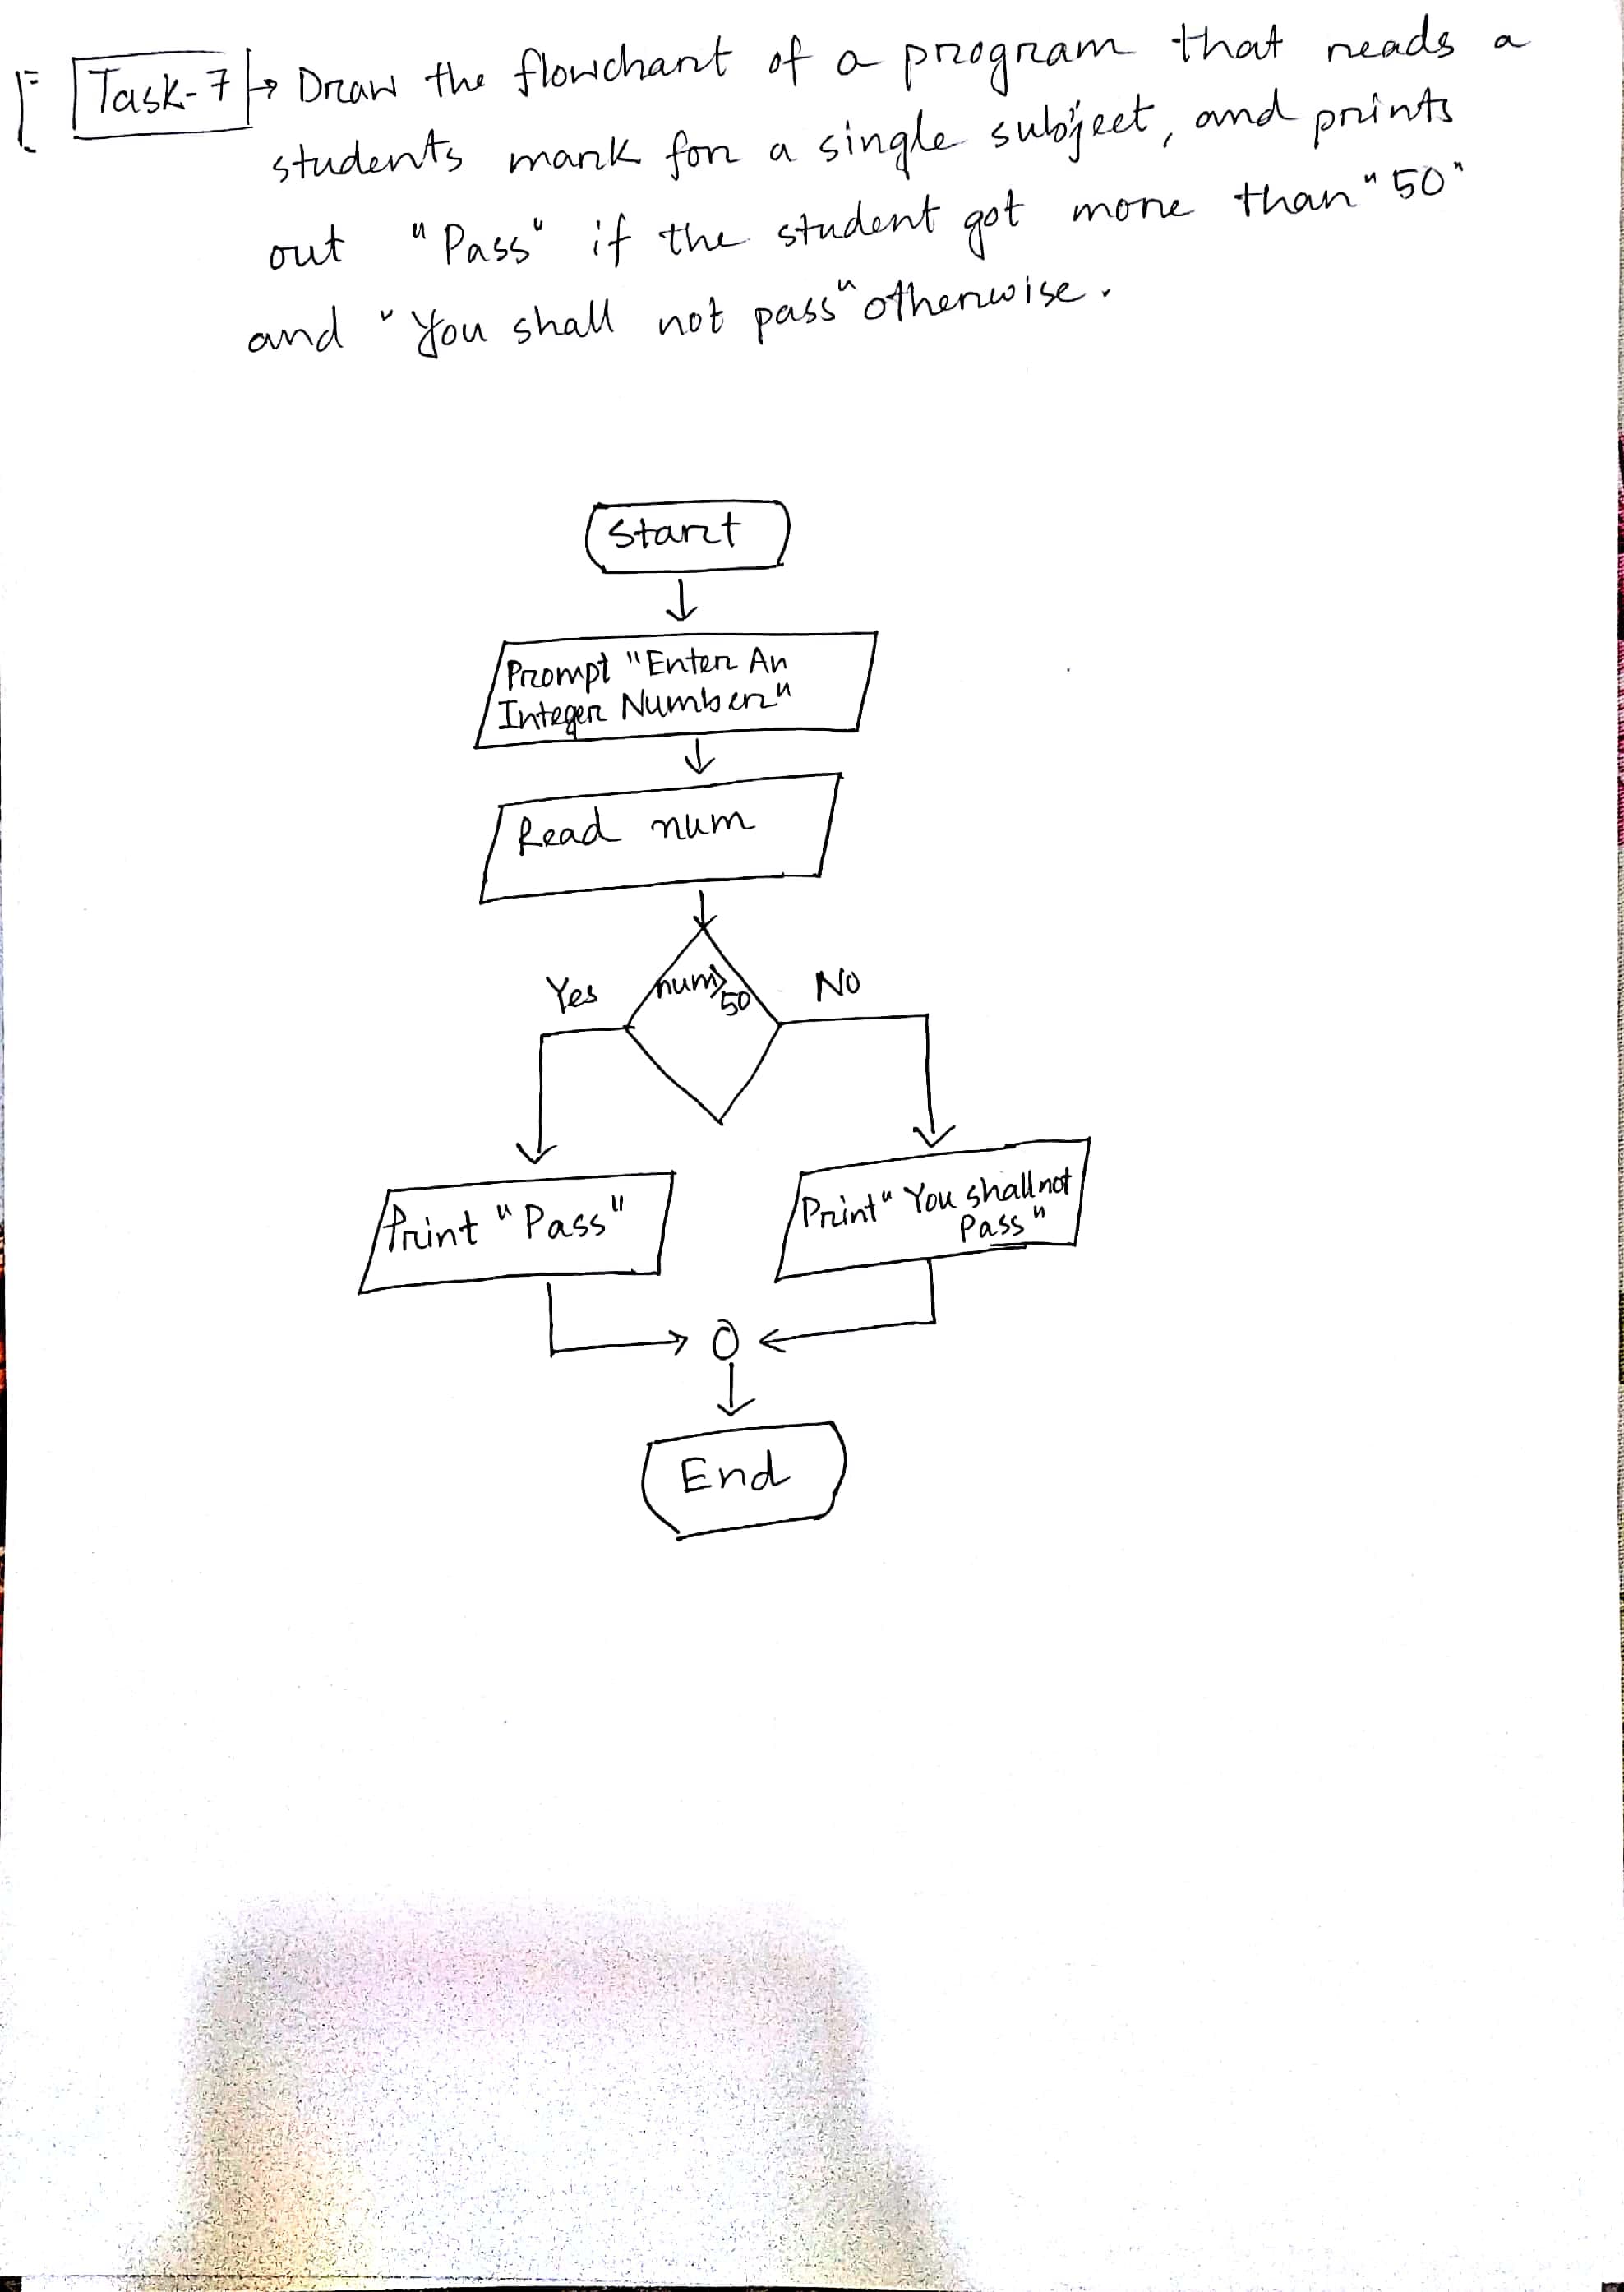 Task-7 → Draw the flowchart of a program that reads a
students mark for a single subject, and prints
out "Pass" if the student got more than "50"
and "You shall not pass" otherwise.
Start
Prompt "Enter An
Integer Number"
Read num
num>
50
Yes
No
Print "Pass"
Print "You shall not
Pass"
End